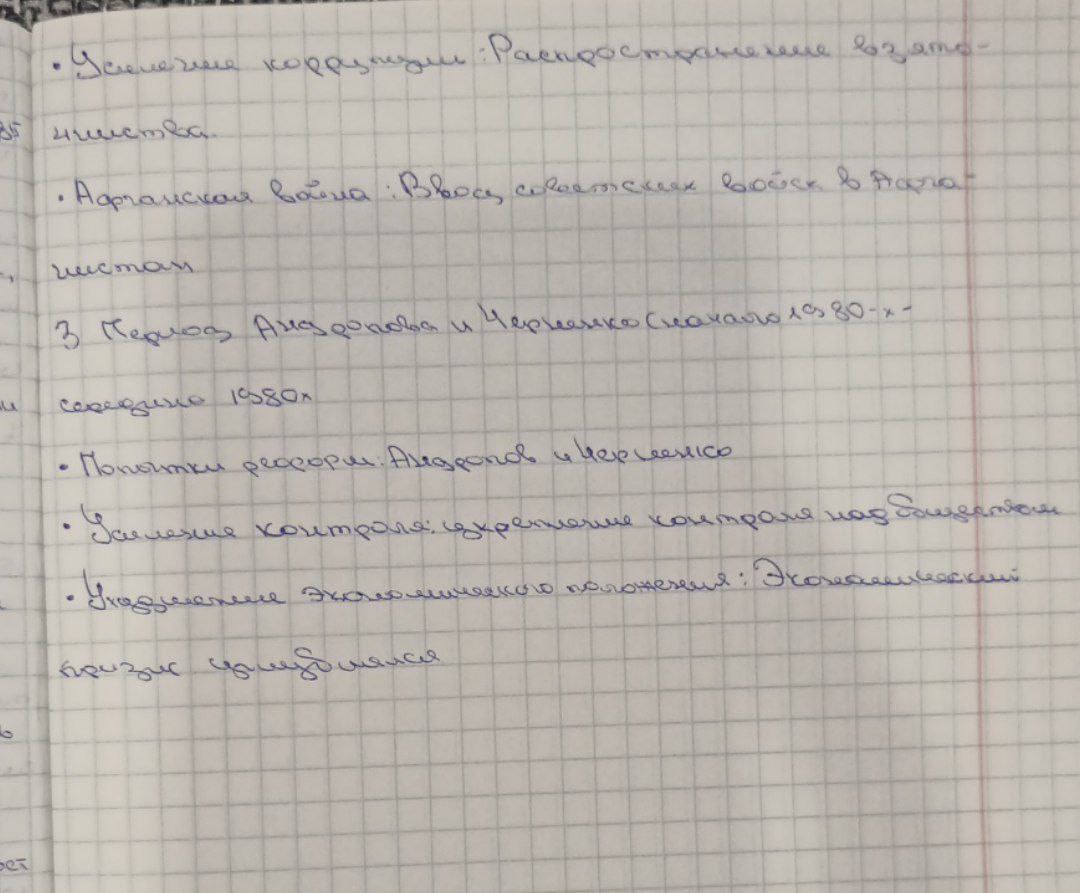 • Усиление коррупции: Распространение взято-
85 чничества.
• Афганская война: Ввод советских войск в Афга-
нистан
3 Период Андропова и Черненко (начало 1980-х -
и середина 1980х
• Попытки реформ: Андропов и Черненко
• Усиление контроля: укрепление контроля над обществом
• Ухудшение экономического положения: Экономический
кризис углублялся
ь
ост